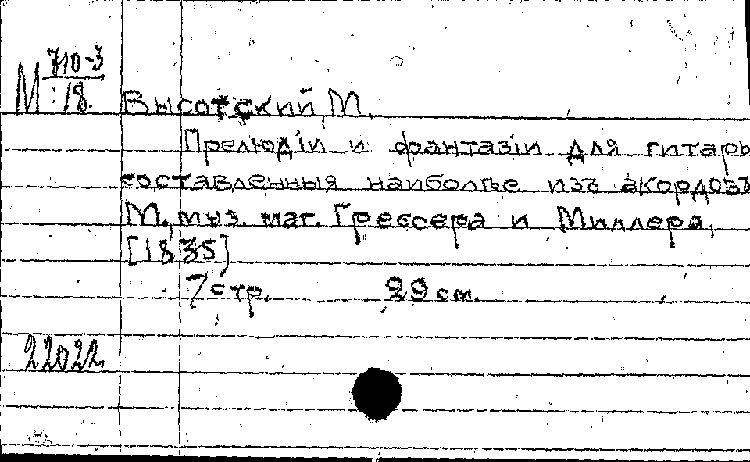 М 710-3
:18.
Высотский М.
Прелюдіи и фантазіи для гитары
составленныя наиболѣе изъ акордовъ
М., муз. маг. Грессера и Миллера,
[1835]
7 стр. 29 см.
22022